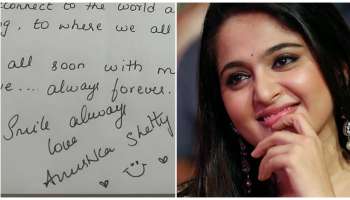 connect to the world a
g, to where we all
all soon with m
e... always forever.
Smile always
love
Anushka Shetty